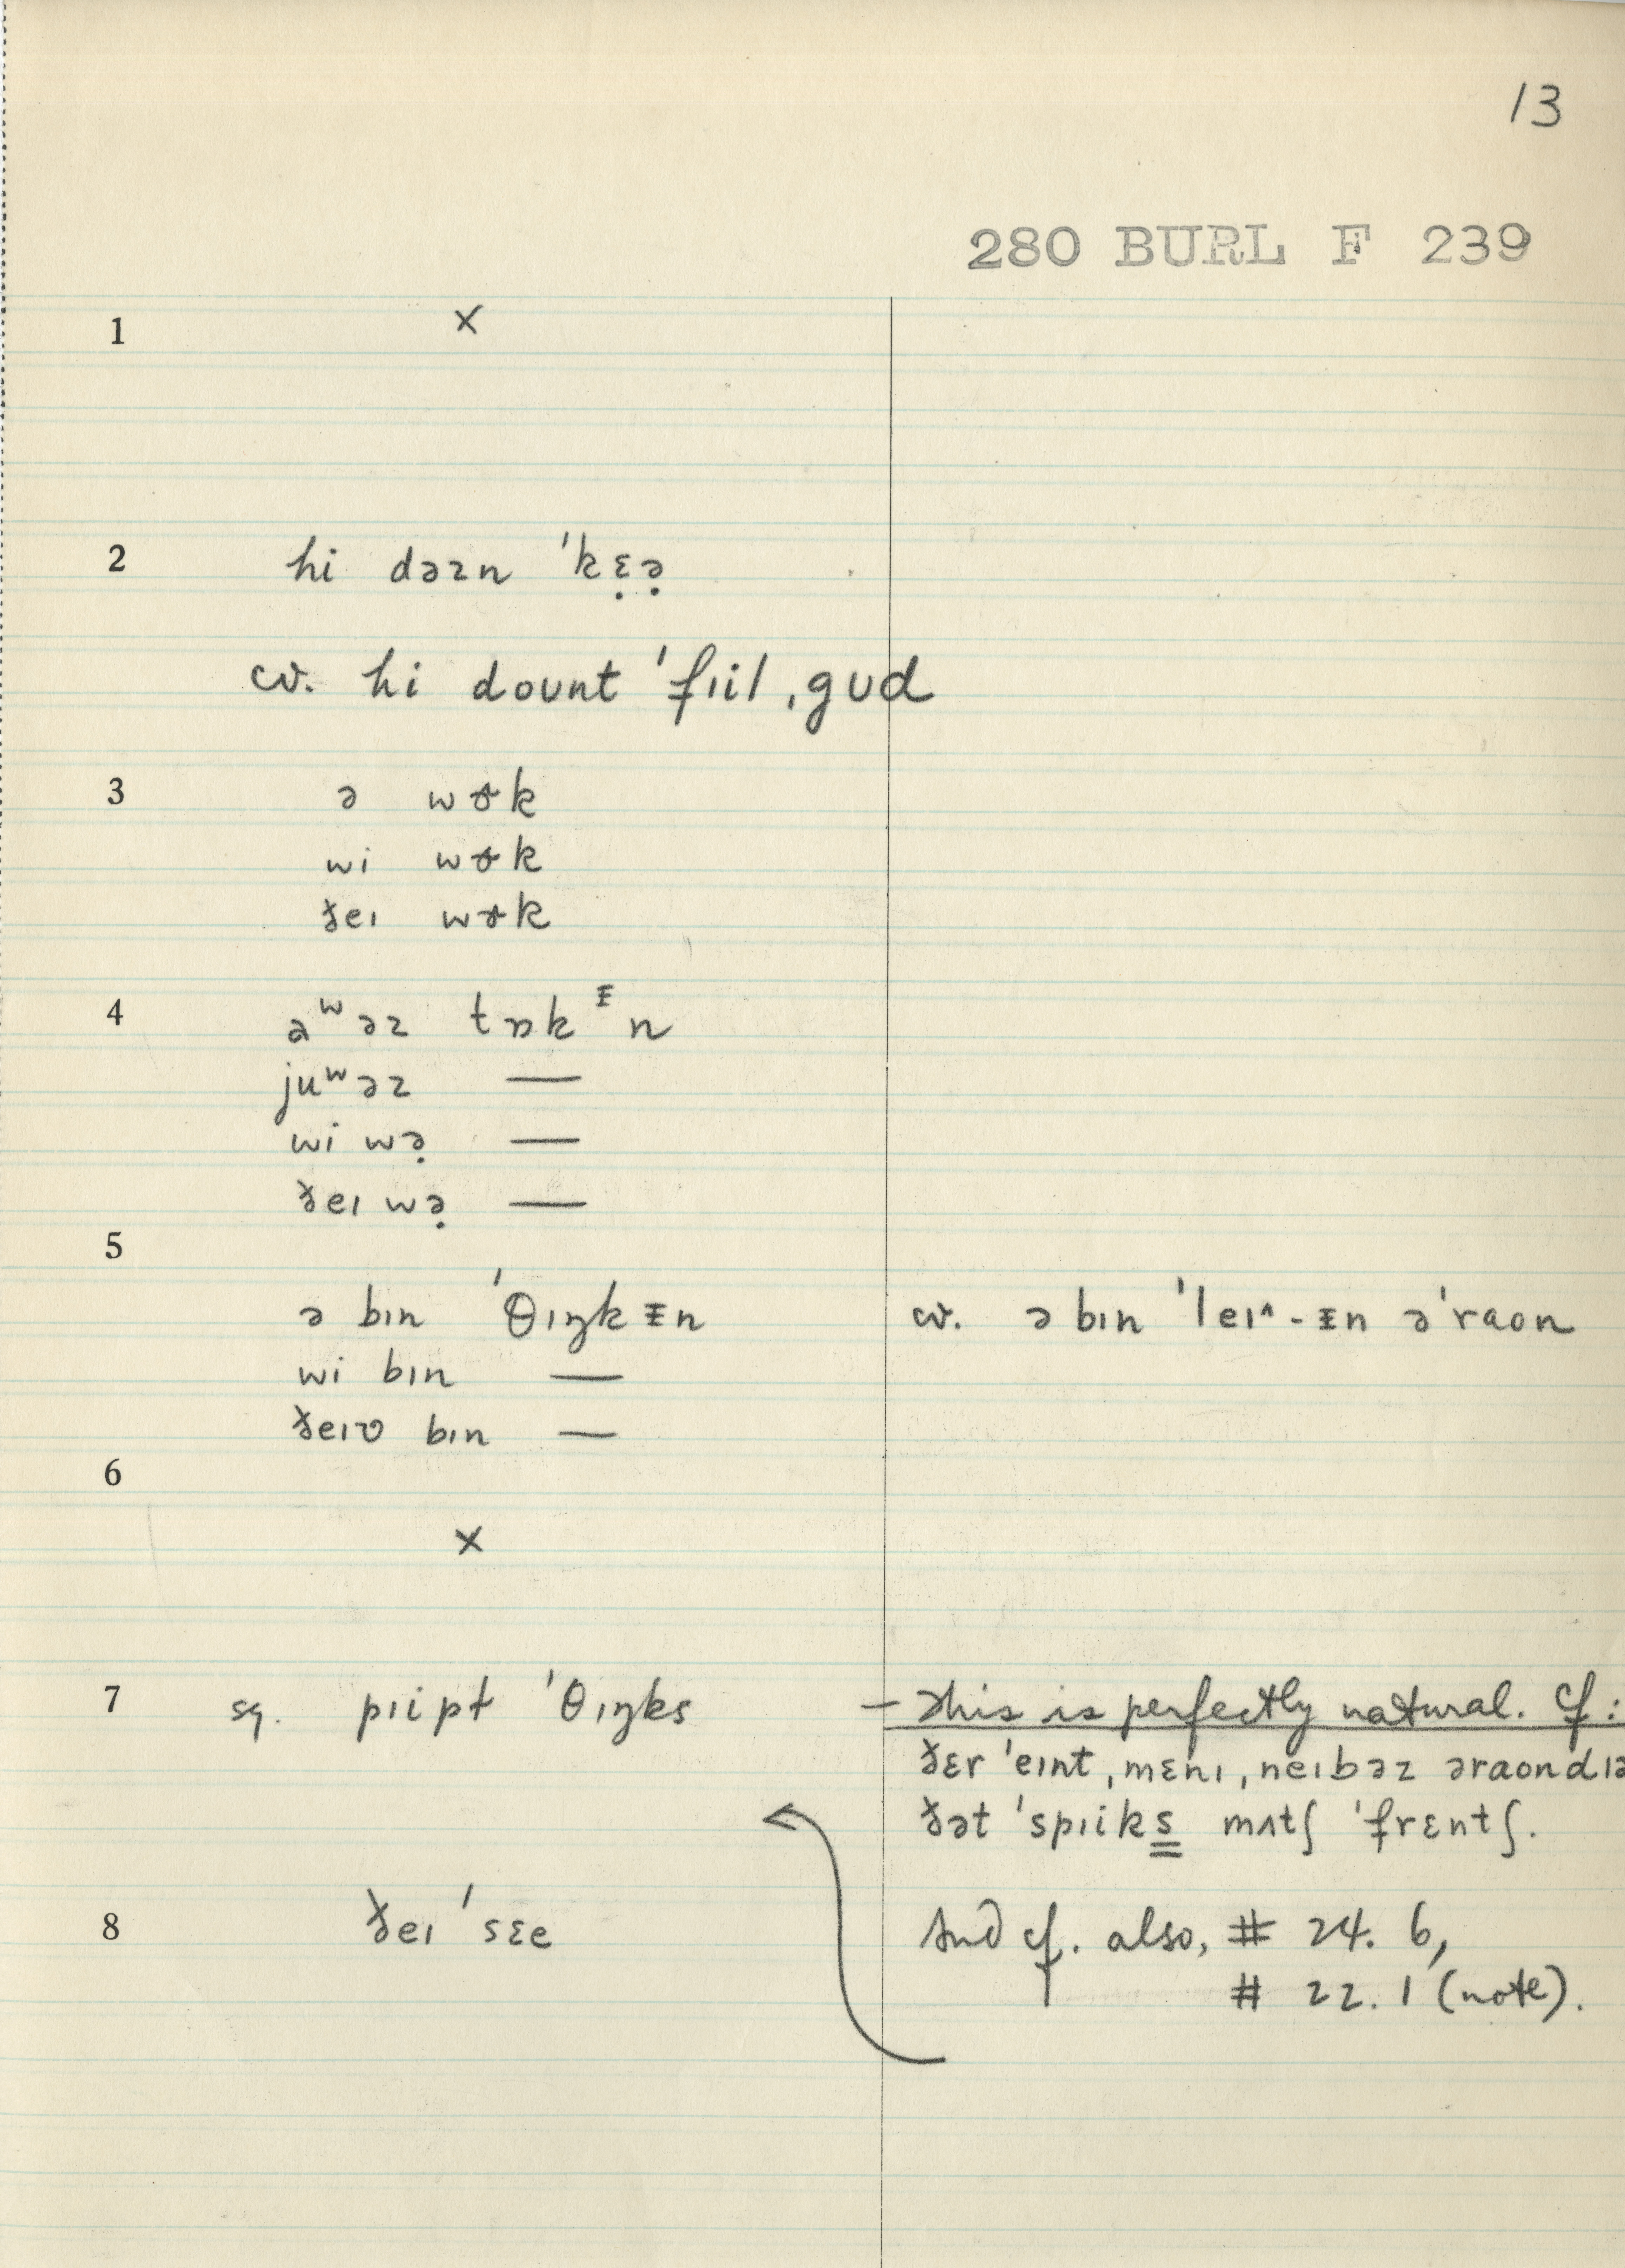 13
280 BURL F 239
1 ×
2 hi dəzn ˈkɛ̣ə̣
cv. hi doʊnt ˈfɪil ˌgʊd
3 ə wɚk
wi wɚk
ðeɪ wɚk
4 aʷəz tɒkᵻn
juʷəz —
wi wə̣ —
ðeɪ wə̣ —
5
ə bɪn ˈθɪŋkᵻn cv. ə bɪn ˈleɪ^-ᵻn əˈraon
wi bɪn —
ðeɪv bɪn —
6
×
7 sg. pɪipɫ ˈθɪŋks – This is perfectly natural. Cf:
ðɛr ˈeɪnt ˌmɛnɪ ˌneɪbəz əraond ɪə
ðət ˈspɪiks mʌtʃ ˈfrɛntʃ.
8 ðeɪ ˈsɛe And cf. also, # 24. 6,
# 22. 1 (note).